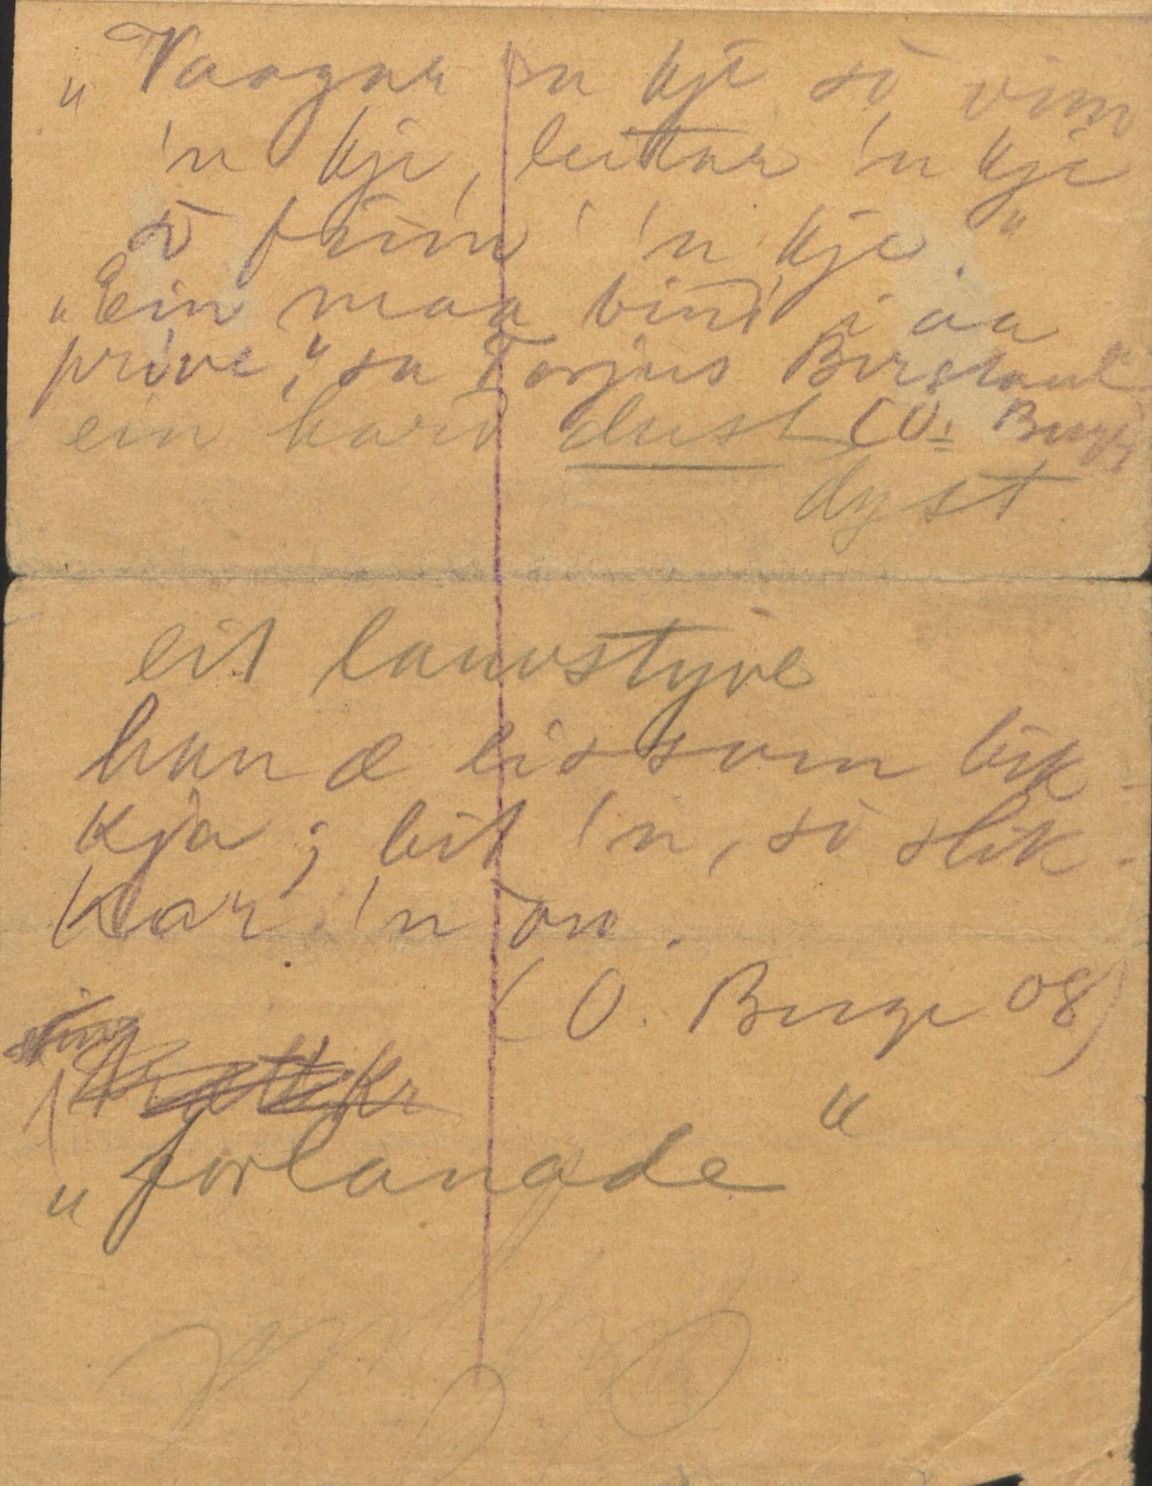 "Vaagar 'n kje so vinn
'n kje, leitar 'n kje
so finn 'n kje."
"Ein maa binde i aa
prøve," sa Torjus Bergland
ein hard dust (O. Berge
dyst
eit lauvstyve
han æ lissom bik-
kja; bit 'n, so slik-
kar 'n on.
(O. Berge 08)
"forlanade"